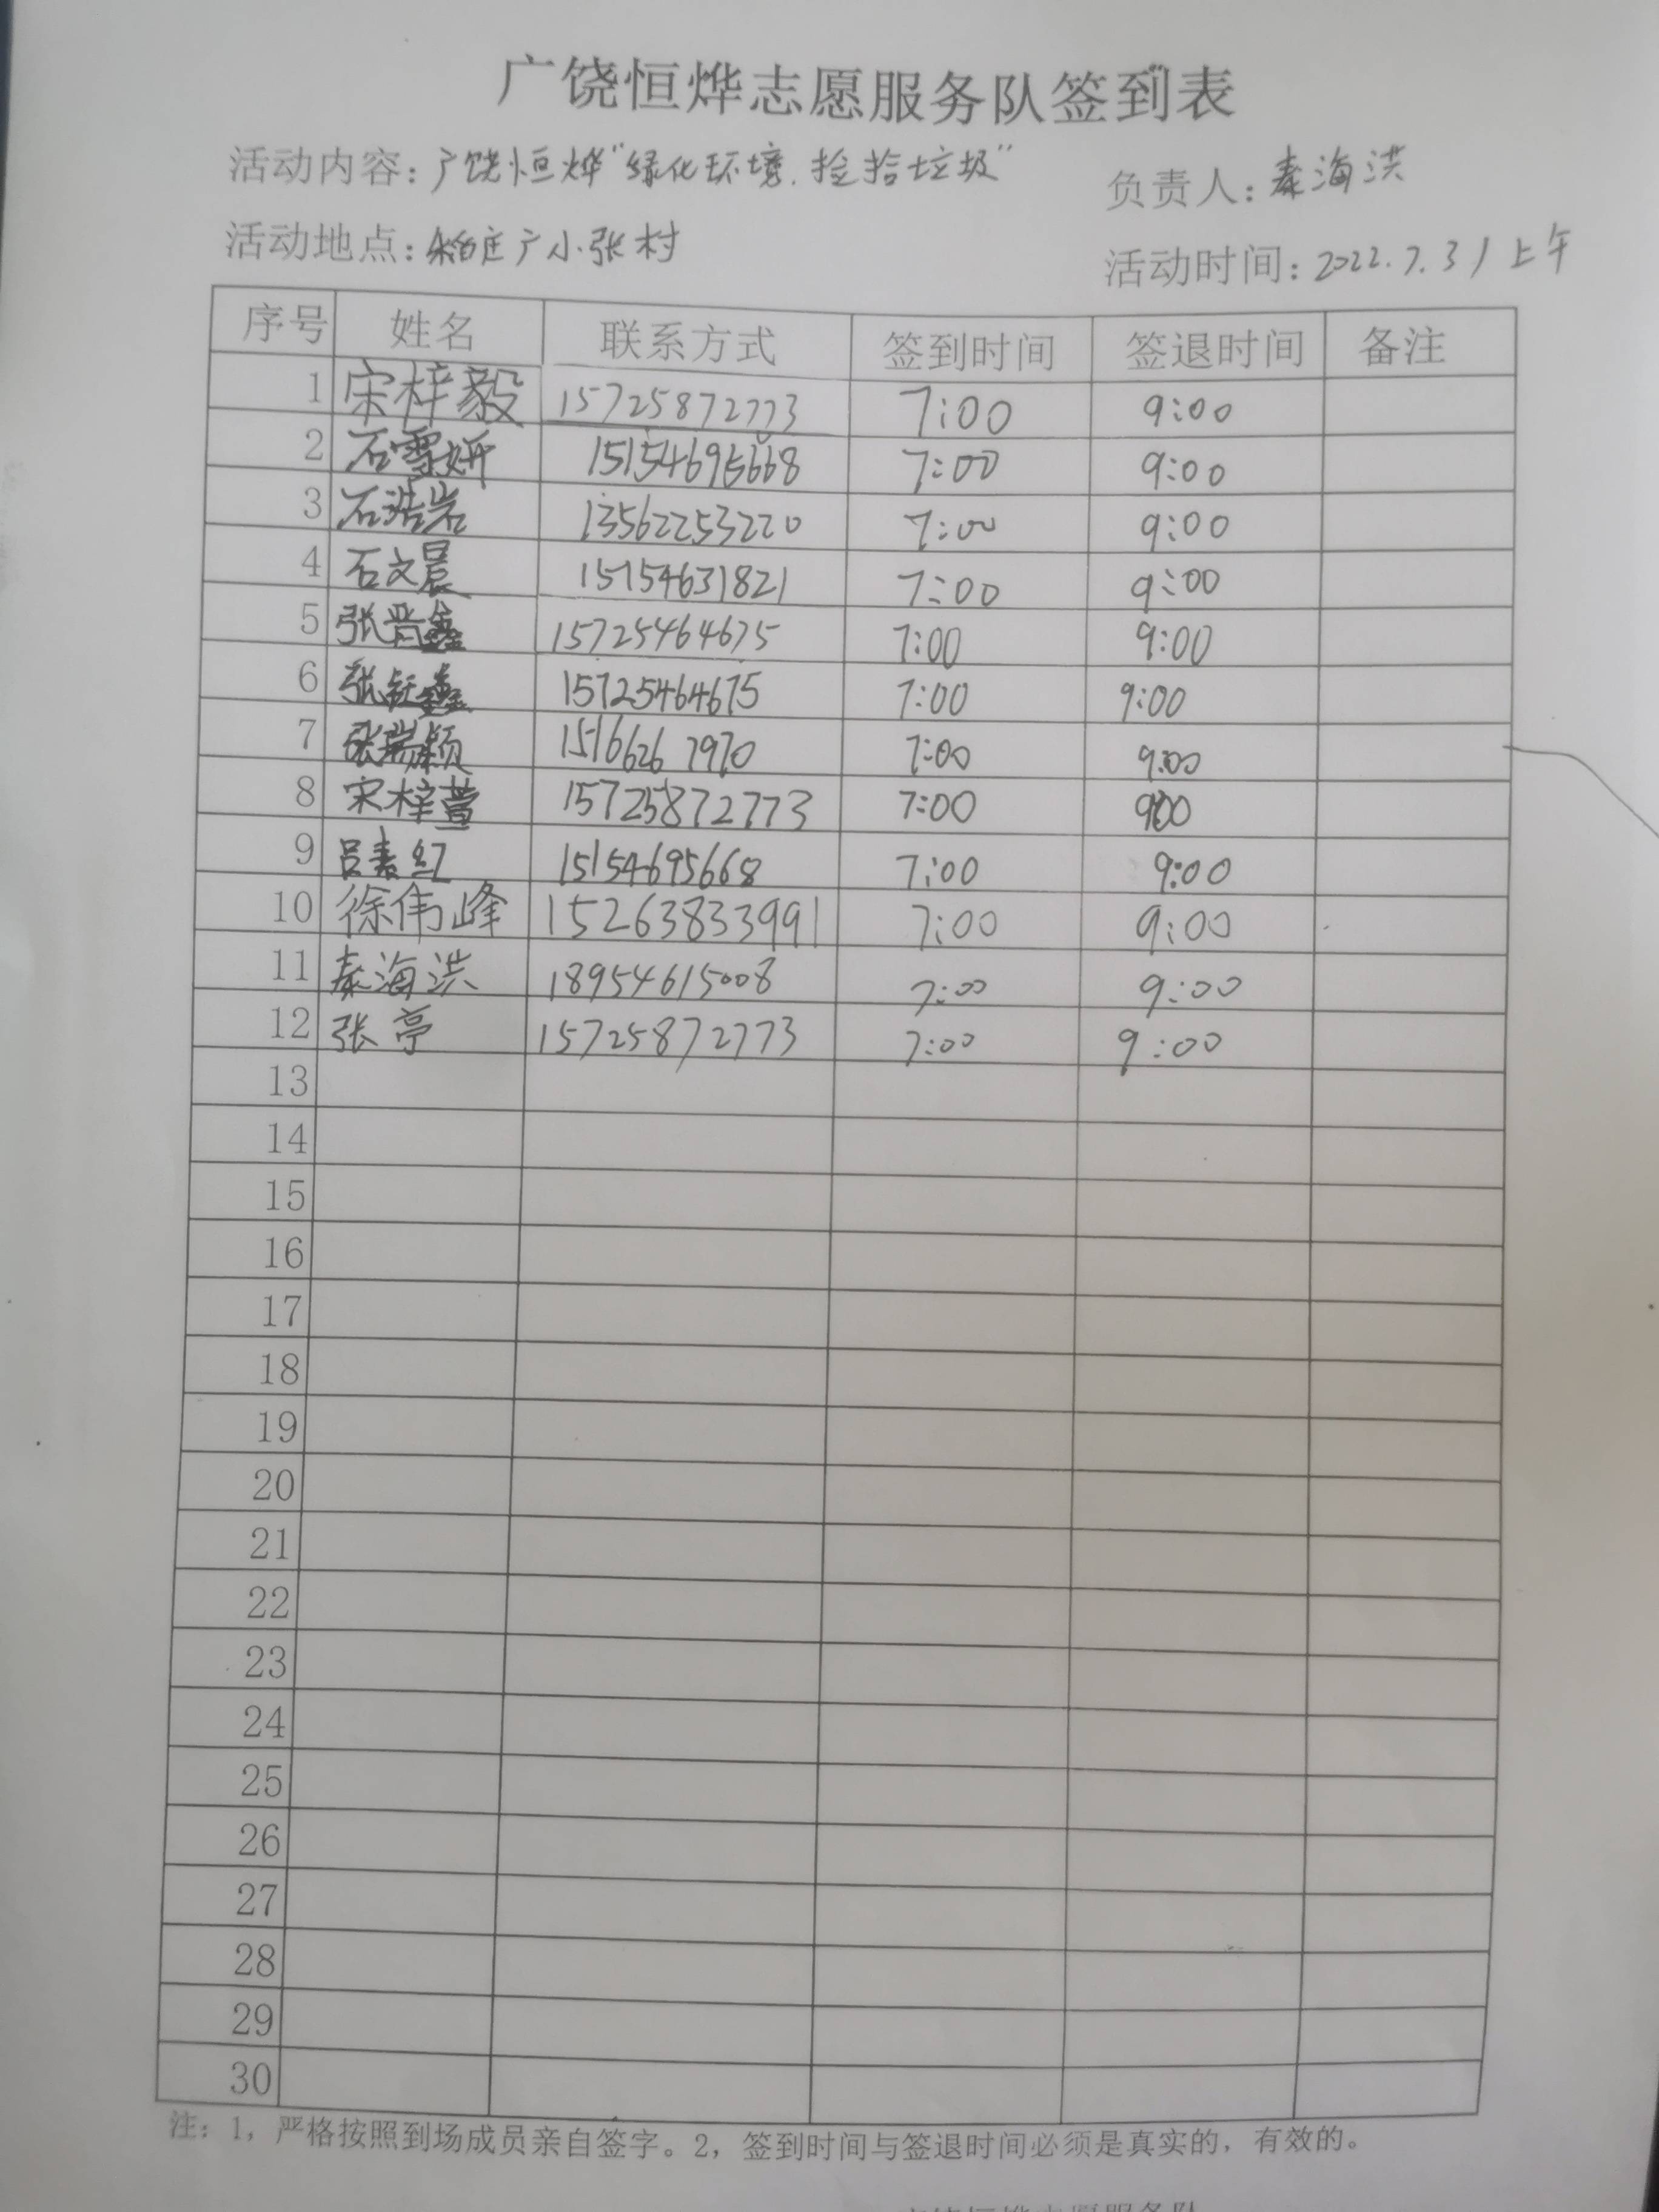 广饶恒烨志愿服务队签到表
活动内容：广饶恒烨“绿化环境，捡拾垃圾” 负责人：秦海洪
活动地点：稻庄广小张村 活动时间：2022.7.31上午
序号 姓名 联系方式 签到时间 签退时间 备注
1 宋梓毅 15725872773 7:00 9:00
2 石雪妍 15154695668 7:00 9:00
3 石浩岩 13562253220 7:00 9:00
4 石文晨 15154631821 7:00 9:00
5 张晋鑫 15725464675 7:00 9:00
6 张钰鑫 15725464675 7:00 9:00
7 张瑞颖 15166267970 7:00 9:00
8 宋梓萱 15725872773 7:00 9:00
9 吕素红 15154695668 7:00 9:00
10 徐伟峰 15263833991 7:00 9:00
11 秦海洪 18954615008 7:00 9:00
12 张亭 15725872773 7:00 9:00
13
14
15
16
17
18
19
20
21
22
23
24
25
26
27
28
29
30
注：1，严格按照到场成员亲自签字。2，签到时间与签退时间必须是真实的，有效的。
广饶恒烨志愿服务队